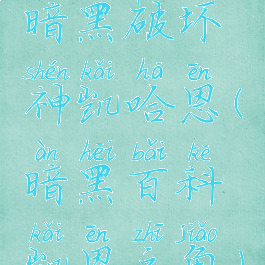 暗黑破坏
shén kǎi hā ēn
神凯哈恩(
àn hēi bǎi kē
暗黑百科
kǎi ēn zhī jiǎo
凯恩之角)